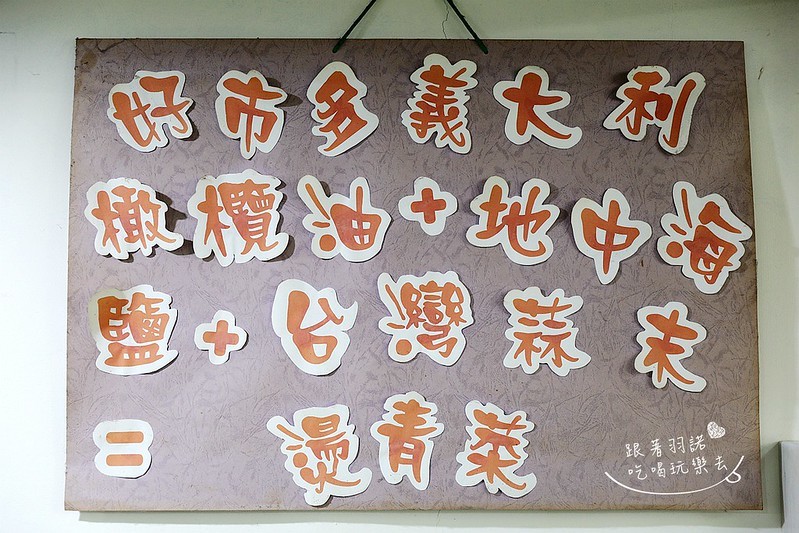 好市多義大利
橄欖油+地中海
鹽+台灣蒜末
=燙青菜
跟著羽諾
吃喝玩樂去